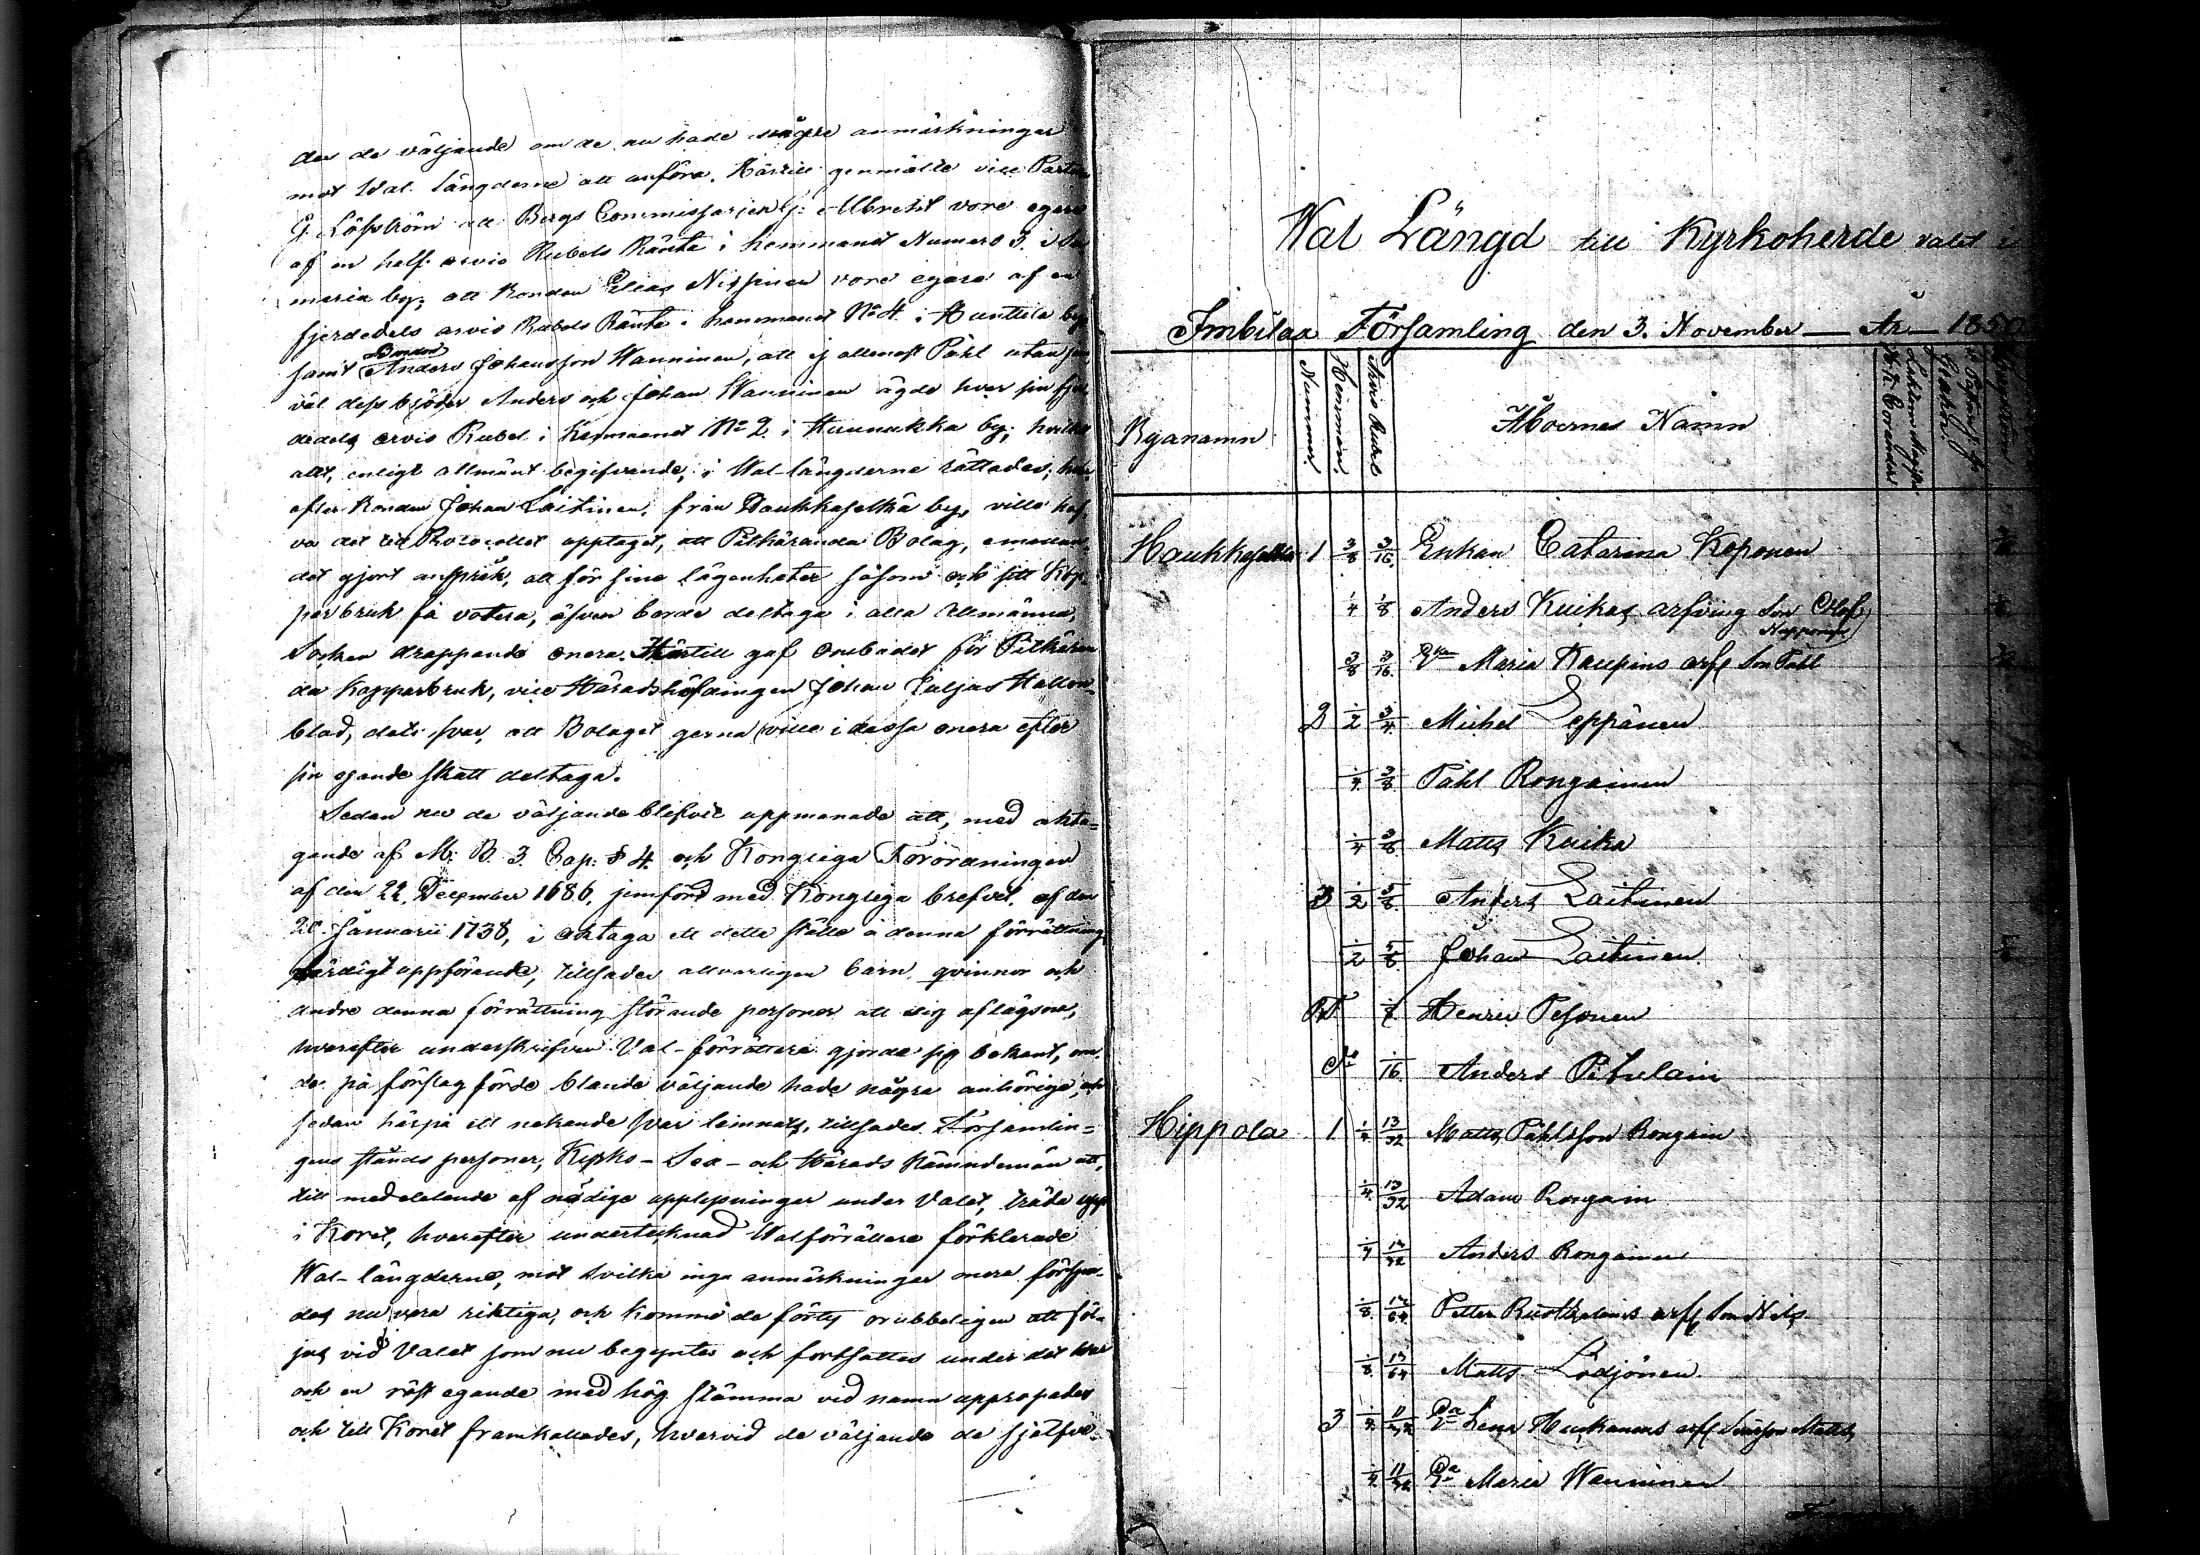 des de väljande om de nu hade någre anmärkningar
mot Val längderne att anföra. Härtill genmälte vice Pastor
G. Löfström att Bergs Commissarien J: Albrecht vore egare
af en half arvio Rubels Ränta i hemmanet Numero 3. i
maria by; att bonden Elias Nissinen vore egare af en
fjerdedels arvio Rubels Ränta i hemmanet No 4. i Hunttila by
samt Bonden Anders Johansson Wanninen, att ej allenast Påhl utan jem
väl dess bröder Anders och Johan Wanninen ägde hvar sin fjer
dedels arvio Rubel i Hemmanet No 2. i Huunukka by; hvilket
allt, enligt allmänt begifvande, i Wal-längderne rättades; hvar
efter bonden Johan Laitinen, från Haukkaselkä by, ville haf
va det till Protocollet upptaget, att Pitkäranda Bolag, emedan
det gjort anspråk, att för sina lägenheter såsom och sitt Kop
parbruk få votera, äfven borde deltaga i alla allmänna,
Socken drappande onera. Härtill gaf Ombudet för Pitkäran
da Kopparbruk, vice Häradshöfdingen Johan Julius Hallon
blad, det svar, att Bolaget gerna ville i dessa onera efter
sin egande skatt deltaga.
Sedan nu de väljande blifvit uppmanade att, med akta=
gande af M: B. 3. Cap: § 4. och Kongliga Förordningen
af den 22. December 1686, jemförd med Kongliga brefvet af den
20. Januarii 1738, i akttaga ett dette ställe å denna förrättning
värdigt uppförande, tillsades allvarligen barn, qvinnor och
andre denna förrättning störande personer att sig aflägsna,
hvarefter underskrifven Val-förrättare gjorde sig bekant, om
de på förslag förde blande väljande hade några anhörige, och
sedan härpå ett nekande svar lemnats, tillsades Församlin=
gens stånds personer, Kyrko-Sex- och Härads Nämndemän att,
till meddelande af nödige upplysningar under Valet, träda upp
i Koret, hvarefter undertecknad Valförrättare förklarade
Wal-längderne, mot hvilka inga anmärkningar mera förspor
des nu vara riktiga, och komme de förty orubbeligen att föl=
jas vid Valet som nu begyntes och fortsattes under det hvar
och en röst egande med hög stämma vid namn uppropades
och till Koret framkallades, hvarvid de väljande de sjelfve
Wal Längd till Kyrkoherde valet i
Imbilax Församling den 3. November — År — 1850
Byanamn Nummer. Hemman. Arvio Rubel Åboernes Namn
Haukkaselkä 1 3/8 3/16 Enkan Catarina Koponen
1/4 1/8 Anders Kuikas arfving Son Olof
3/8 3/16 Enkan Maria Kaupins arfv Son Påhl
2 1/2 3/4 Michel Seppänen
1/4 3/8 Påhl Rongainen
1/4 3/8 Matts Kuika
3 1/2 5/8 Anders Laitinen
1/2 5/8 Johan Laitinen
Henric Pesonen
1/16 Anders Pitulain
Hippola 1 1/4 13/32 Matts Påhlsson Rongain
1/4 13/32 Adam Rongain
1/4 13/32 Anders Rongainen
1/8 13/64 Petter Ruotzalains arfv Son Nils
1/8 13/64 Matts Lödjönen
3 1/4 11/32 Lena Huukanens arfv Svärson Matts
1/4 11/32 Maria Wanninen